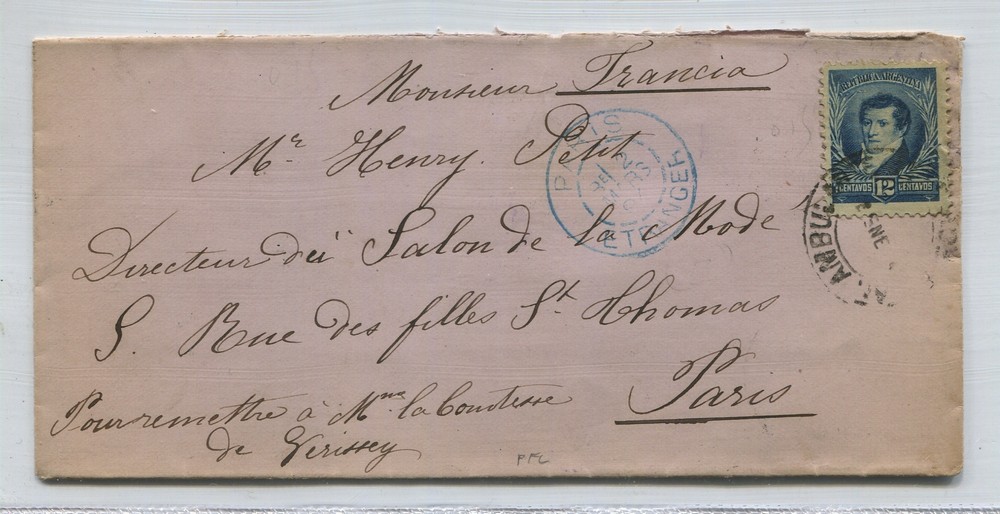 Monsieur Francia
Mr. Henry. Petit
Directeur deï Salon de la Mode
S. Rue des filles St. Thomas
Paris
Pour remettre à Mme la Comtesse
de Verissey
REPUBLICA ARGENTINA
CENTAVOS 12 CENTAVOS
PARIS
ETRANGER
AMBU
ENE